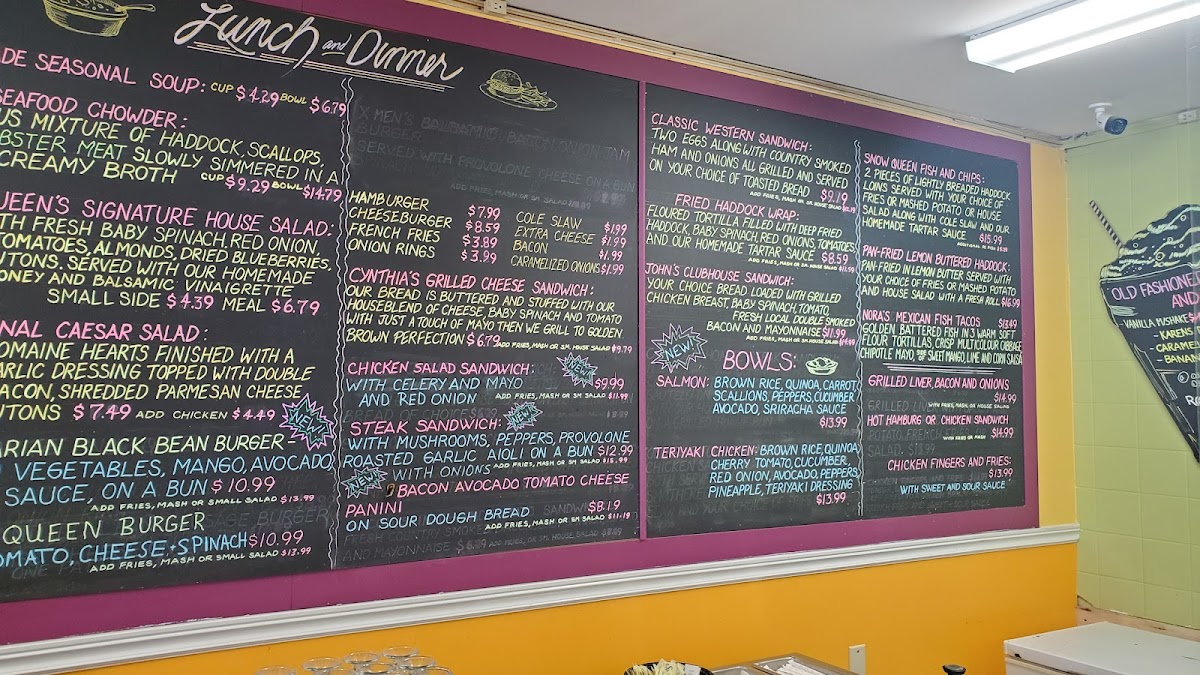 Lunch and Dinner
ADE SEASONAL SOUP: CUP $4.29 BOWL $6.79
SEAFOOD CHOWDER:
US MIXTURE OF HADDOCK, SCALLOPS,
OBSTER MEAT SLOWLY SIMMERED IN A
CREAMY BROTH CUP $9.29 BOWL $14.79
UEEN'S SIGNATURE HOUSE SALAD:
TH FRESH BABY SPINACH, RED ONION,
TOMATOES, ALMONDS, DRIED BLUEBERRIES,
UTONS, SERVED WITH OUR HOMEMADE
ONEY AND BALSAMIC VINAIGRETTE
SMALL SIDE $4.39 MEAL $6.79
NAL CAESAR SALAD:
OMAINE HEARTS FINISHED WITH A
ARLIC DRESSING TOPPED WITH DOUBLE
ACON, SHREDDED PARMESAN CHEESE
UTONS $7.49 ADD CHICKEN $4.49
NEW!
ARIAN BLACK BEAN BURGER-
VEGETABLES, MANGO, AVOCADO
SAUCE, ON A BUN $10.99
ADD FRIES, MASH OR SMALL SALAD $13.99
QUEEN BURGER
OMATO, CHEESE + SPINACH $10.99
ADD FRIES, MASH OR SMALL SALAD $13.99
X MEN'S BALSAMIC BACON ONION JAM
BURGER
SERVED WITH PROVOLONE CHEESE ON A BUN
ADD FRIES, MASH OR SM. HOUSE SALAD
HAMBURGER $7.99
CHEESEBURGER $8.59
FRENCH FRIES $3.89
ONION RINGS $3.99
COLE SLAW $1.99
EXTRA CHEESE $1.99
BACON $1.99
CARAMELIZED ONIONS $1.99
CYNTHIA'S GRILLED CHEESE SANDWICH:
OUR BREAD IS BUTTERED AND STUFFED WITH OUR
HOUSEBLEND OF CHEESE, BABY SPINACH AND TOMATO
WITH JUST A TOUCH OF MAYO THEN WE GRILL TO GOLDEN
BROWN PERFECTION $6.79 ADD FRIES, MASH OR SM. HOUSE SALAD $9.79
CHICKEN SALAD SANDWICH: NEW!
WITH CELERY AND MAYO $9.99
AND RED ONION ADD FRIES, MASH OR SM SALAD $11.99
STEAK SANDWICH: NEW!
WITH MUSHROOMS, PEPPERS, PROVOLONE
ROASTED GARLIC AIOLI ON A BUN $12.99
WITH ONIONS ADD FRIES, MASH OR SM SALAD $15.99
NEW!
BACON AVOCADO TOMATO CHEESE
PANINI $8.19
ON SOUR DOUGH BREAD ADD FRIES, MASH OR SM SALAD $11.19
CLASSIC WESTERN SANDWICH:
TWO EGGS ALONG WITH COUNTRY SMOKED
HAM AND ONIONS ALL GRILLED AND SERVED
ON YOUR CHOICE OF TOASTED BREAD $9.19
ADD FRIES, MASH OR SM. HOUSE SALAD
FRIED HADDOCK WRAP:
FLOURED TORTILLA FILLED WITH DEEP FRIED
HADDOCK, BABY SPINACH, RED ONIONS, TOMATOES
AND OUR HOMEMADE TARTAR SAUCE $8.59
ADD FRIES, MASH OR SM. HOUSE SALAD $11.59
JOHN'S CLUBHOUSE SANDWICH:
YOUR CHOICE BREAD LOADED WITH GRILLED
CHICKEN BREAST, BABY SPINACH, TOMATO,
FRESH LOCAL DOUBLE SMOKED
BACON AND MAYONNAISE $11.99
ADD FRIES, MASH OR SM. HOUSE SALAD
NEW!
BOWLS:
SALMON: BROWN RICE, QUINOA, CARROT,
SCALLIONS, PEPPERS, CUCUMBER
AVOCADO, SRIRACHA SAUCE
$13.99
TERIYAKI CHICKEN: BROWN RICE, QUINOA,
CHERRY TOMATO, CUCUMBER,
RED ONION, AVOCADO, PEPPERS,
PINEAPPLE, TERIYAKI DRESSING
$13.99
SNOW QUEEN FISH AND CHIPS:
2 PIECES OF LIGHTLY BREADED HADDOCK
LOINS SERVED WITH YOUR CHOICE OF
FRIES OR MASHED POTATO OR HOUSE
SALAD ALONG WITH COLE SLAW AND OUR
HOMEMADE TARTAR SAUCE $15.99
PAN-FRIED LEMON BUTTERED HADDOCK:
PAN-FRIED IN LEMON BUTTER SERVED WITH
YOUR CHOICE OF FRIES OR MASHED POTATO
AND HOUSE SALAD WITH A FRESH ROLL $16.99
NORA'S MEXICAN FISH TACOS $13.49
GOLDEN BATTERED FISH IN 3 WARM SOFT
FLOUR TORTILLAS, CRISP MULTICOLOUR CABBAGE
CHIPOTLE MAYO, SWEET MANGO, LIME AND CORN SALSA
GRILLED LIVER, BACON AND ONIONS
$14.99
WITH FRIES, MASH OR HOUSE SALAD
HOT HAMBURG OR CHICKEN SANDWICH
WITH FRIES OR MASH $14.99
CHICKEN FINGERS AND FRIES:
$13.99
WITH SWEET AND SOUR SAUCE
OLD FASHIONE
AND
VANILLA
KAREN'S
CARAME
BANAN